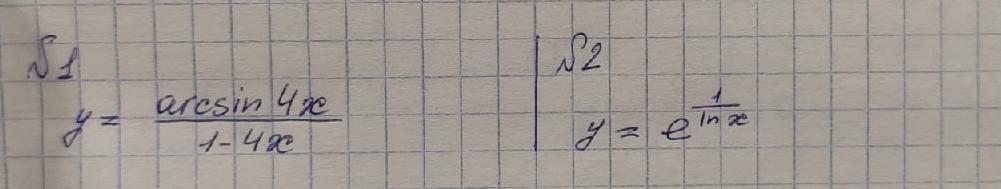 №1
y = arcsin 4x / 1-4x
№2
y = e^(1/ln x)